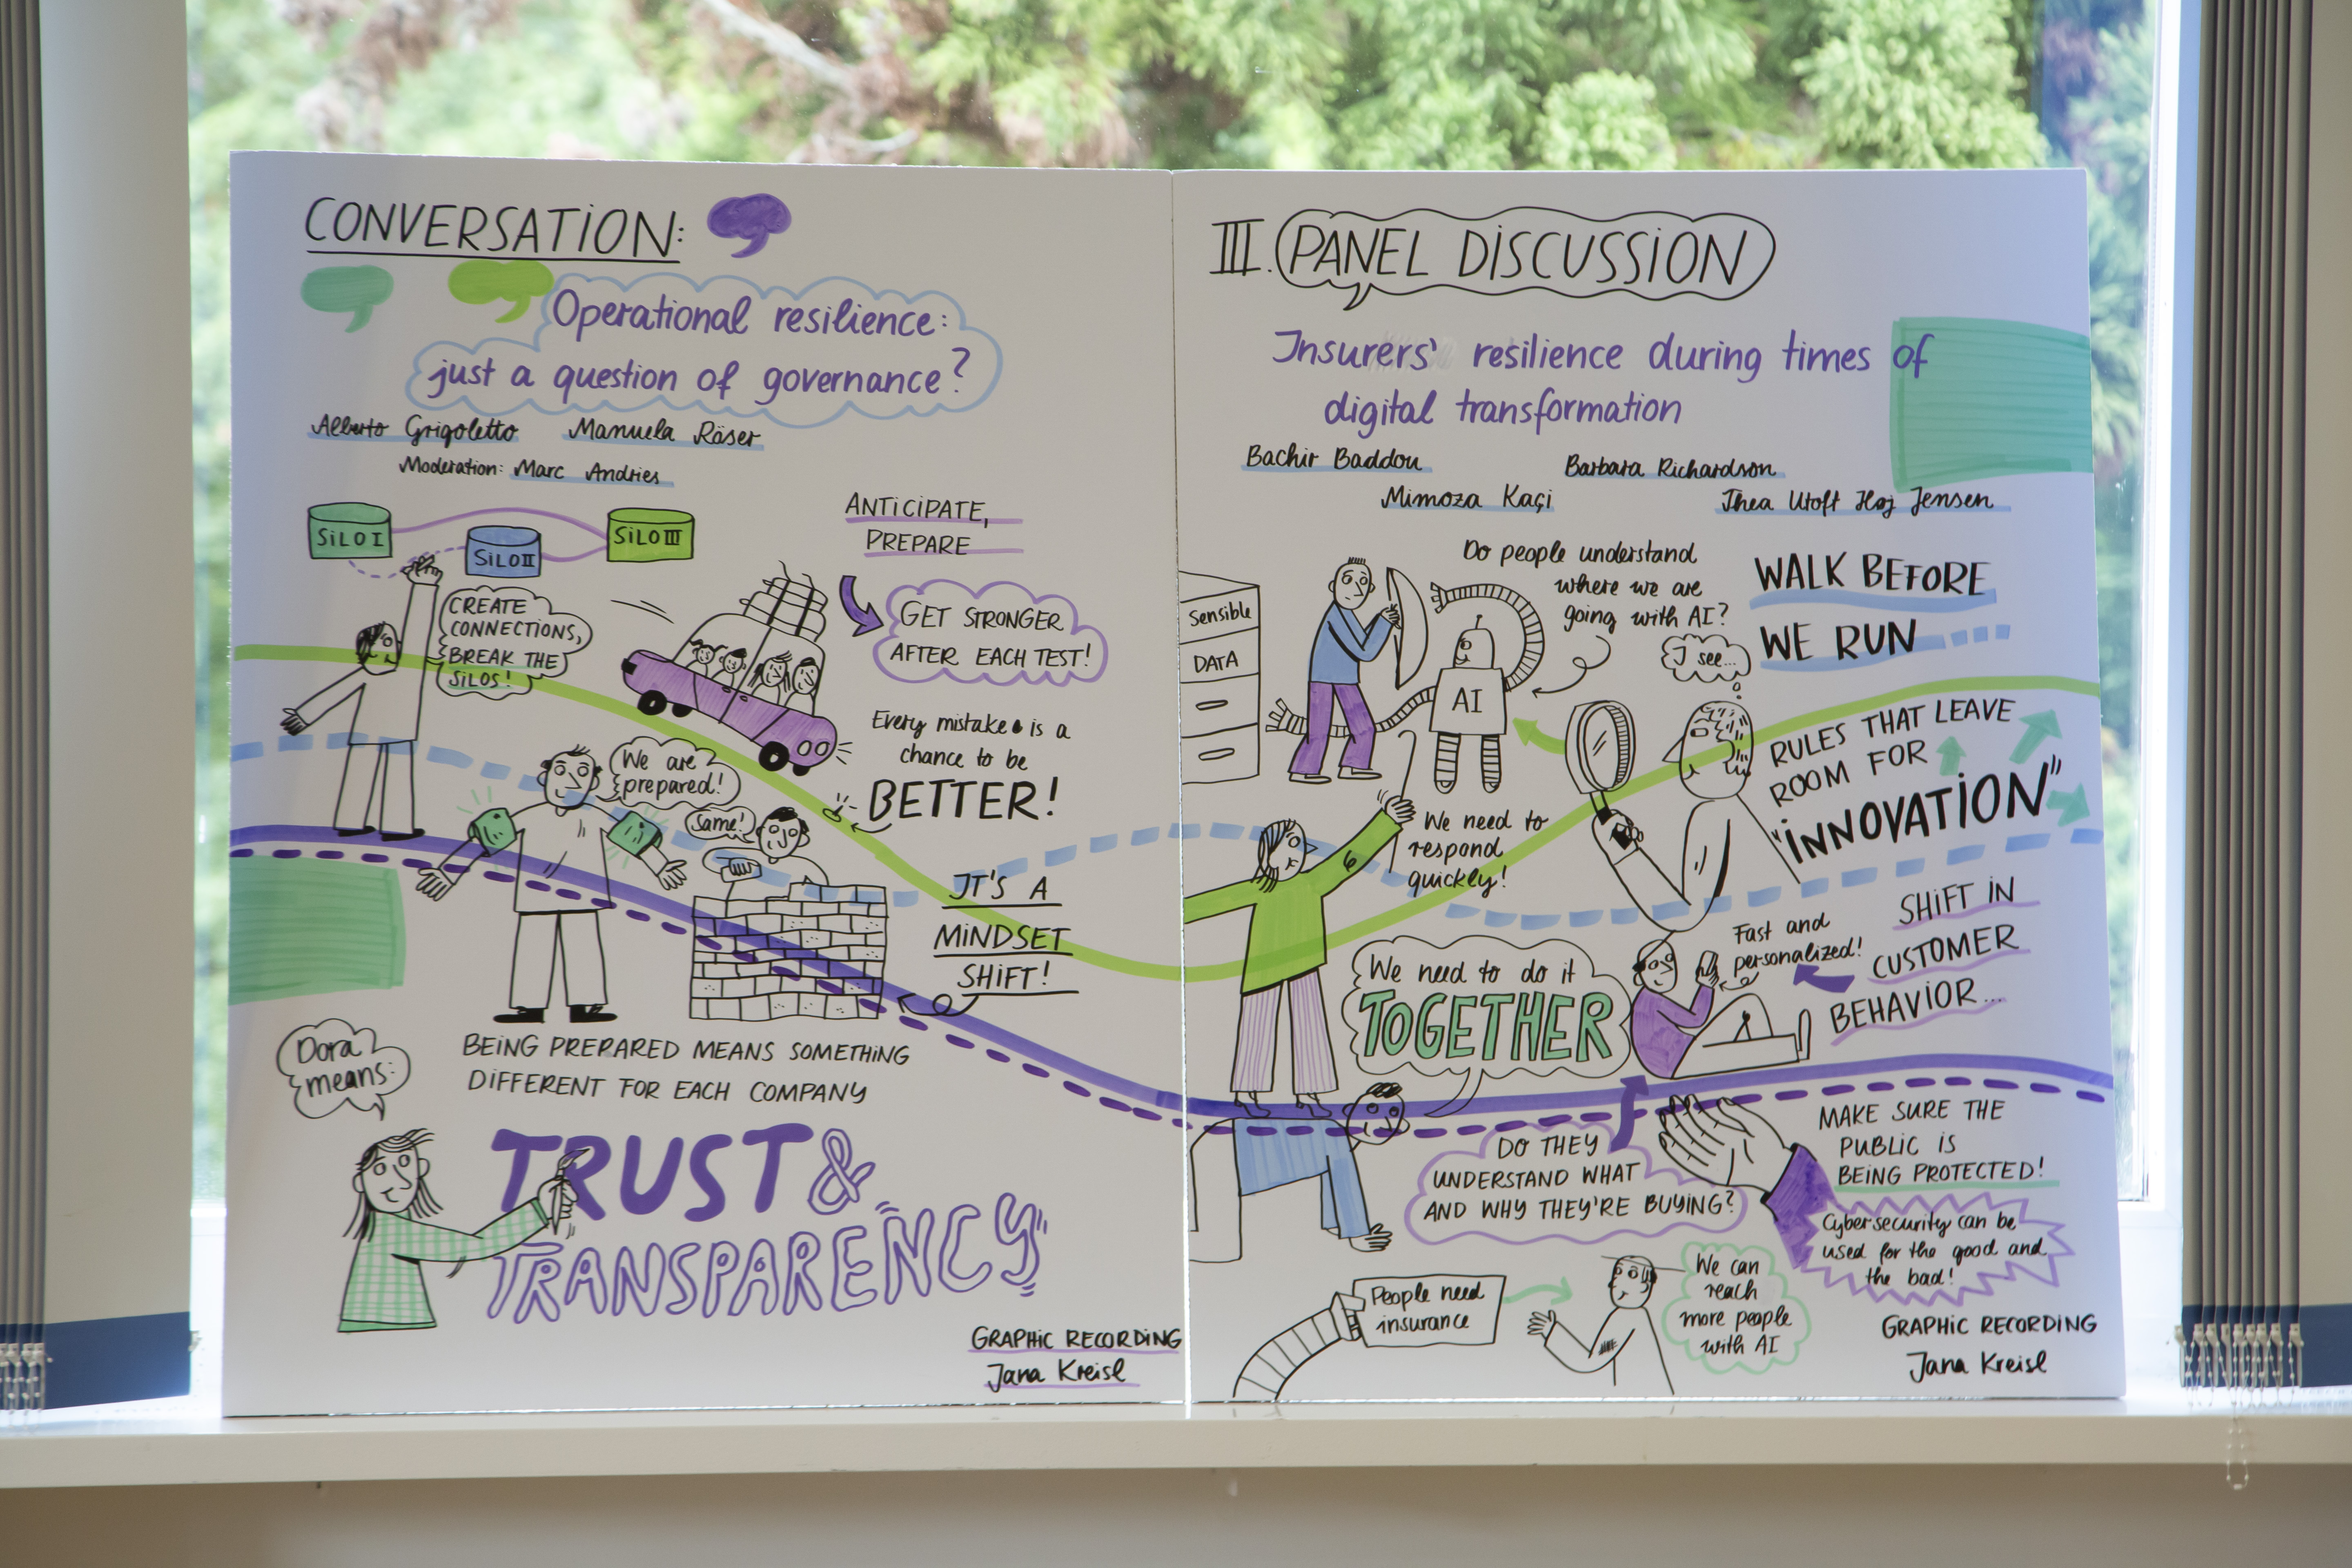 CONVERSATION:
Operational resilience:
just a question of governance?
Alberto Grigoletto Manuela Räser
Moderation: Marc Andries
SILO I
SILO II
SILO III
CREATE
CONNECTIONS,
BREAK THE
SILOS!
ANTICIPATE,
PREPARE
GET STRONGER
AFTER EACH TEST!
Every mistake is a
chance to be
BETTER!
We are
prepared!
Same!
IT'S A
MINDSET
SHIFT!
BEING PREPARED MEANS SOMETHING
DIFFERENT FOR EACH COMPANY
Dora
means:
TRUST &
TRANSPARENCY
GRAPHIC RECORDING
Jana Kreisl
III. PANEL DISCUSSION
Insurers' resilience during times of
digital transformation
Bachir Baddou Barbara Richardson
Mimoza Kaçi Thea Utoft Høj Jensen
Sensible
DATA
AI
Do people understand
where we are
going with AI?
I see...
WALK BEFORE
WE RUN
RULES THAT LEAVE
ROOM FOR
"INNOVATION"
We need to
respond
quickly!
We need to do it
TOGETHER
Fast and
personalized!
SHIFT IN
CUSTOMER
BEHAVIOR...
DO THEY
UNDERSTAND WHAT
AND WHY THEY'RE BUYING?
MAKE SURE THE
PUBLIC IS
BEING PROTECTED!
Cybersecurity can be
used for the good and
the bad!
People need
insurance
We can
reach
more people
with AI
GRAPHIC RECORDING
Jana Kreisl